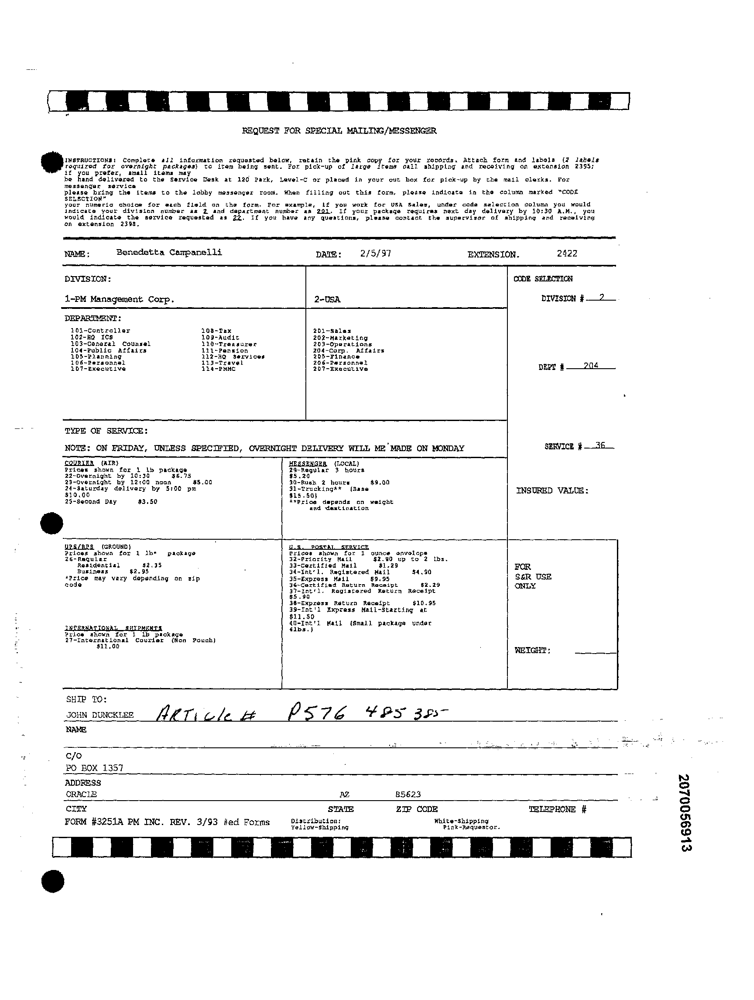 REQUEST FOR SPECIAL MAILING/MESSENGER
INSTRUCTIONS: Complete all information requested below, retain the pink copy for your records. Attach form and labels (2 labels
required for overnight packages) to item being sent. For pick-up of large items call shipping and receiving on extension 2395;
if you prefer, small items may
be hand delivered to the Service Desk at 120 Park, Level-C or placed in your out box for pick-up by the mail clerks. For
messenger service
please bring the items to the lobby messenger room. When filling out this form, please indicate in the column marked "CODE
SELECTION"
your numeric choice for each field on the form. For example, if you work for USA Sales, under code selection column you would
indicate your division number as 2 and department number as 201. If your package requires next day delivery by 10:30 A.M., you
would indicate the service requested as 22. If you have any questions, please contact the supervisor of shipping and receiving
on extension 2398.
NAME: Benedetta Campanelli DATE: 2/5/97 EXTENSION. 2422
DIVISION: CODE SELECTION
1-PM Management Corp. 2-USA DIVISION # 2
DEPARTMENT:
101-Controller 108-Tax 201-Sales
102-HQ ICS 109-Audit 202-Marketing
103-General Counsel 110-Treasurer 203-Operations
104-Public Affairs 111-Pension 204-Corp. Affairs
105-Planning 112-HQ Services 205-Finance
106-Personnel 113-Travel 206-Personnel
107-Executive 114-PMMC 207-Executive
DEPT # 204
TYPE OF SERVICE:
NOTE: ON FRIDAY, UNLESS SPECIFIED, OVERNIGHT DELIVERY WILL ME MADE ON MONDAY SERVICE # 36
COURIER (AIR)
Prices shown for 1 lb package
22-Overnight by 10:30 $6.75
23-Overnight by 12:00 noon $5.00
24-Saturday delivery by 5:00 pm
$10.00
25-Second Day $3.50
MESSENGER (LOCAL)
29-Regular 3 hours
$5.20
30-Rush 2 hours $9.00
31-Trucking** (Base
$15.50)
**Price depends on weight
and destination
INSURED VALUE:
UPS/RPS (GROUND)
Prices shown for 1 lb* package
26-Regular
Residential $2.35
Business $2.95
*Price may vary depending on zip
code
INTERNATIONAL SHIPMENTS
Price shown for 1 lb package
27-International Courier (Non Pouch)
$11.00
U.S. POSTAL SERVICE
Prices shown for 1 ounce envelope
32-Priority Mail $2.90 up to 2 lbs.
33-Certified Mail $1.29
34-Int'l. Registered Mail $4.50
35-Express Mail $9.95
36-Certified Return Receipt $2.29
37-Int'l. Registered Return Receipt
$5.90
38-Express Return Receipt $10.95
39-Int'l Express Mail-Starting at
$11.50
40-Int'l Mail (Small package under
4lbs.)
FOR
S&R USE
ONLY
WEIGHT:
SHIP TO:
JOHN DUNCKLEE ARTicle # P576 485 385
NAME
C/O
PO BOX 1357
ADDRESS
ORACLE AZ 85623
CITY STATE ZIP CODE TELEPHONE #
FORM #3251A PM INC. REV. 3/93 #ed Forms Distribution: White-Shipping
Yellow-Shipping Pink-Requestor.
2070056913